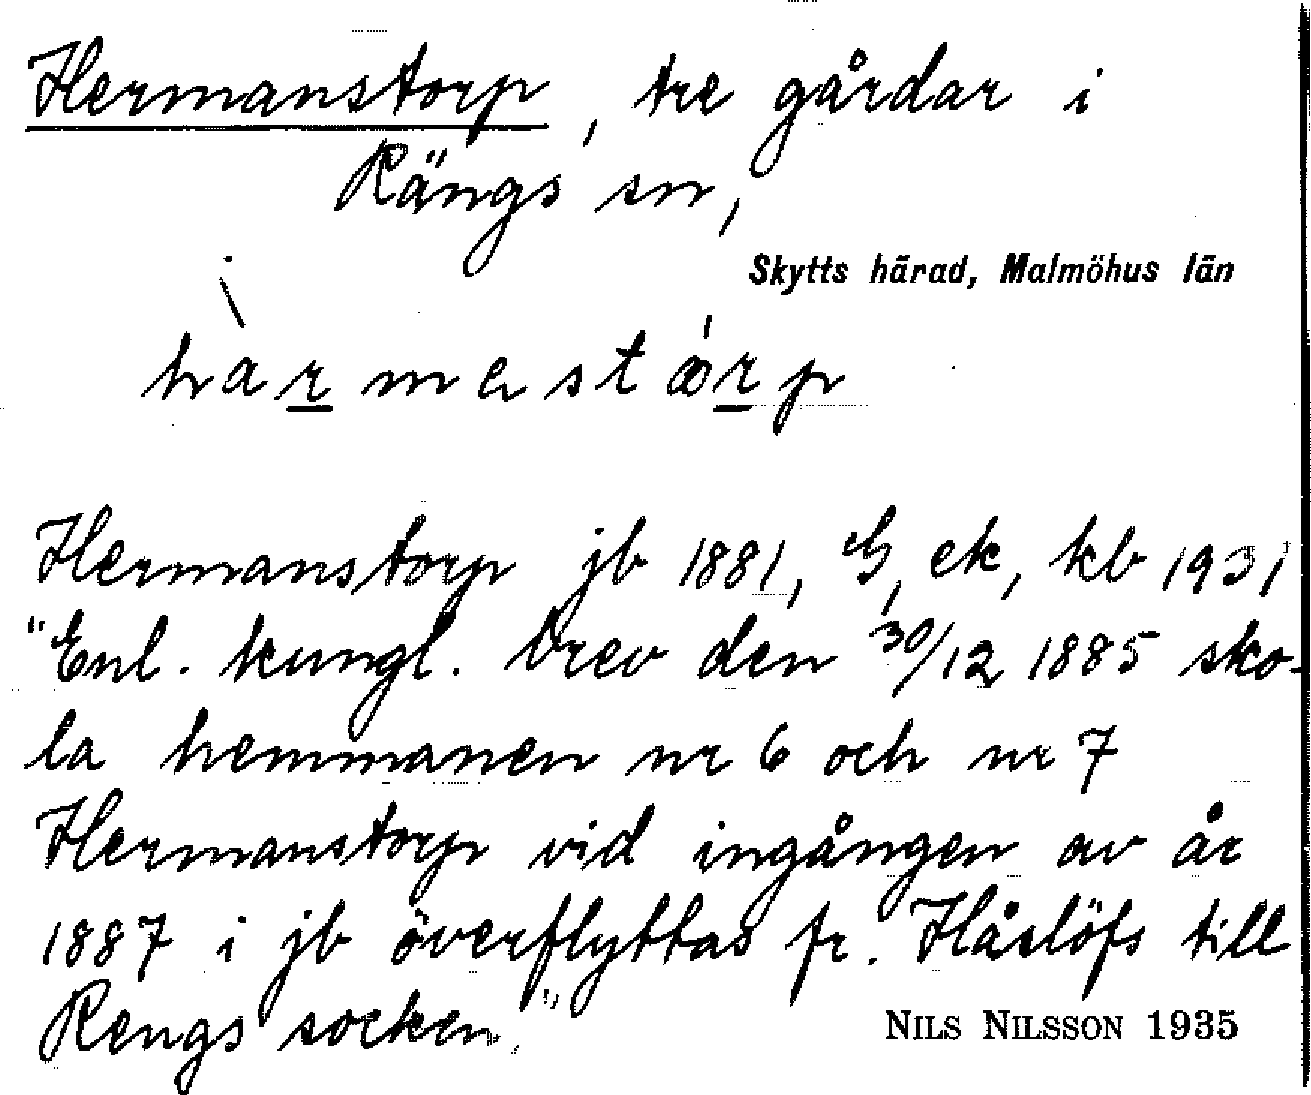 Hermanstorp, tre gårdar i
Rängs sn,
Skytts härad, Malmöhus län
hàrmestǿrp
Hermanstorp jb 1881, ek, kb 1931
"Enl. kungl. brev den 30/12 1885 sko-
la hemmanen nr 6 och nr 7
Hermanstorp vid ingången av år
1887 i jb överflyttas fr. Håslöfs till
Rengs socken."
NILS NILSSON 1935